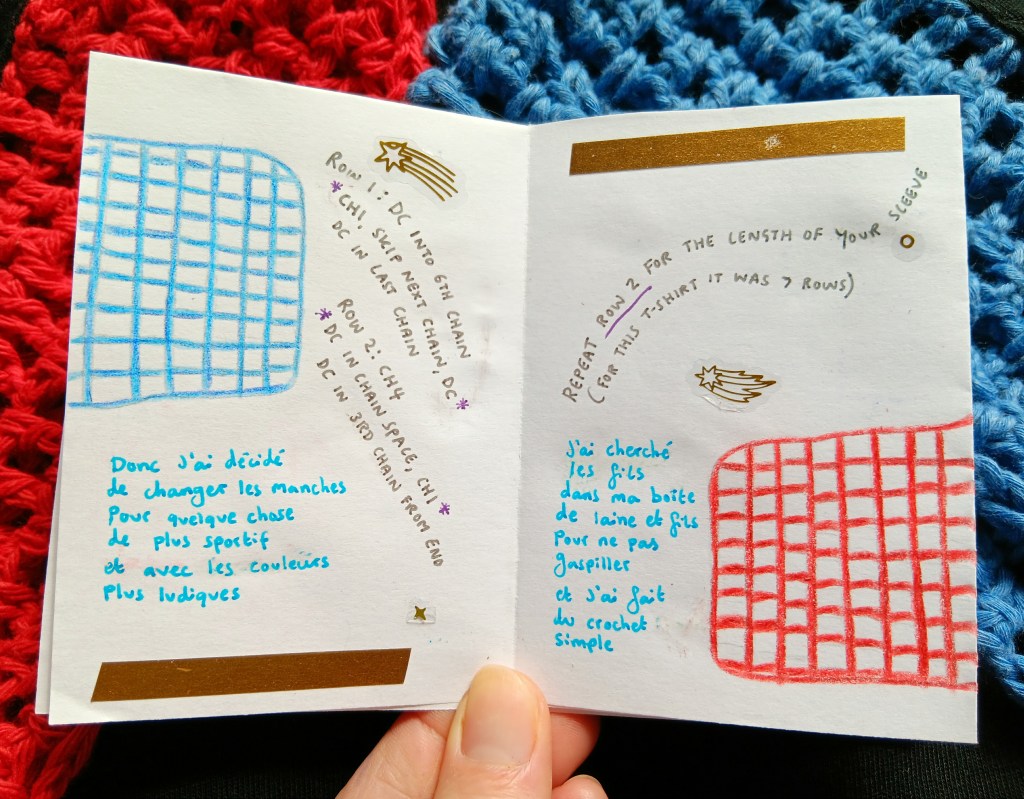 ROW 1: DC INTO 6TH CHAIN
*CH1, SKIP NEXT CHAIN, DC*
DC IN LAST CHAIN
ROW 2: CH4
*DC IN CHAIN SPACE, CH1*
DC IN 3RD CHAIN FROM END
Donc j'ai décidé
de changer les manches
pour quelque chose
de plus sportif
et avec les couleurs
plus ludiques
REPEAT ROW 2 FOR THE LENGTH OF YOUR SLEEVE
(FOR THIS T-SHIRT IT WAS 7 ROWS)
J'ai cherché
les fils
dans ma boîte
de laine et fils
pour ne pas
gaspiller
et j'ai fait
du crochet
simple